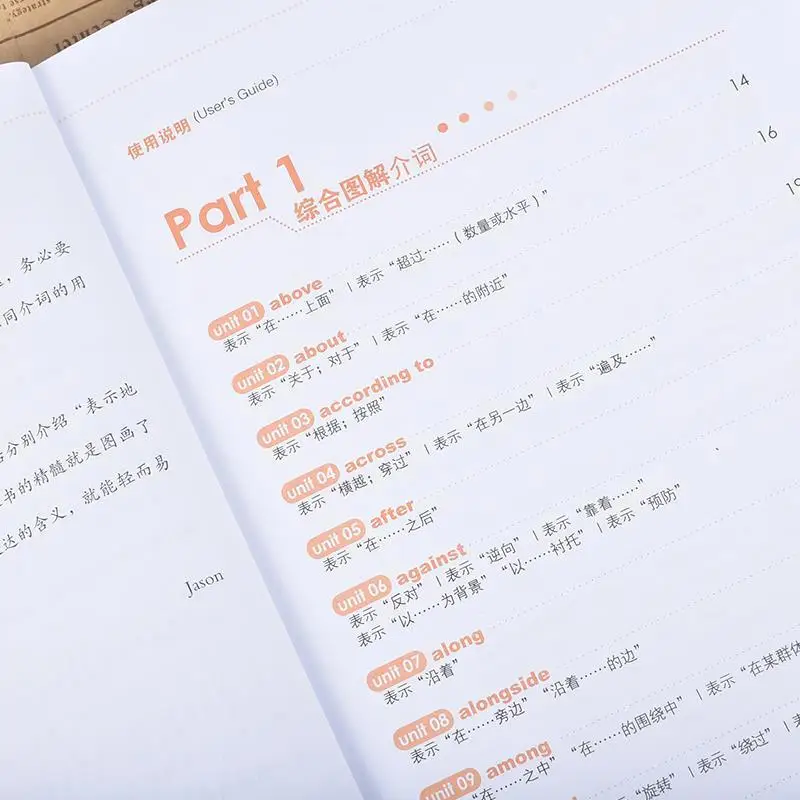 strategy"
Center
，务必要
同介词的用
分别介绍“表示地
书的精髓就是图画了
达的含义，就能轻而易
Jason
使用说明 (User's Guide)
14
Part 1 综合图解介词
16
19
unit 01 above
表示“在……上面”｜表示“超过……（数量或水平）”
unit 02 about
表示“关于；对于”｜表示“在……的附近”
unit 03 according to
表示“根据；按照”
unit 04 across
表示“横越；穿过”｜表示“在另一边”｜表示“遍及……”
unit 05 after
表示“在……之后”
unit 06 against
表示“反对”｜表示“逆向”｜表示“靠着……”
表示“以……为背景”“以……衬托”｜表示“预防”
unit 07 along
表示“沿着”
unit 08 alongside
表示“在……旁边”“沿着……的边”
unit 09 among
表示“在……之中”“在……的围绕中”｜表示“在某群体
“旋转”｜表示“绕过”｜表